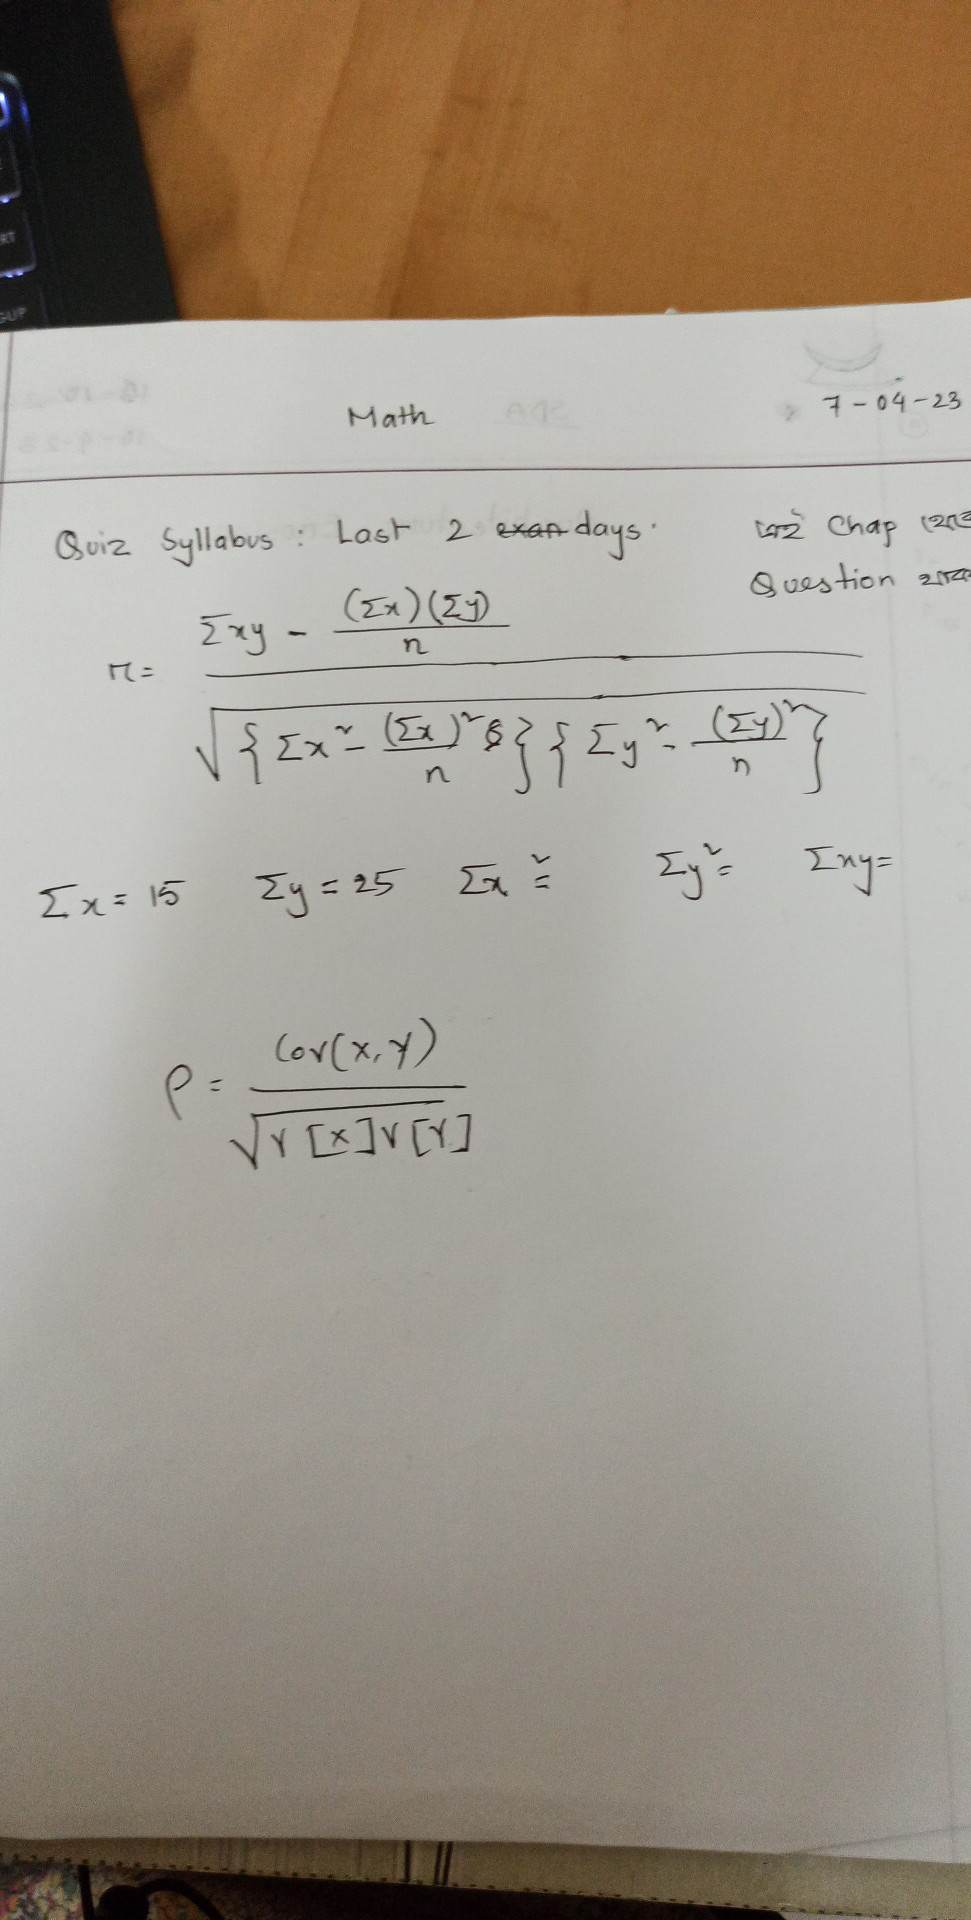 Math
7-04-23
Quiz Syllabus : Last 2 days.
Chap
Question
r = (Σxy - (Σx)(Σy)/n) / √({Σx² - (Σx)²/n}{Σy² - (Σy)²/n})
Σx = 15 Σy = 25 Σx² = Σy² = Σxy =
ρ = Cov(X,Y) / √V[X]V[Y]